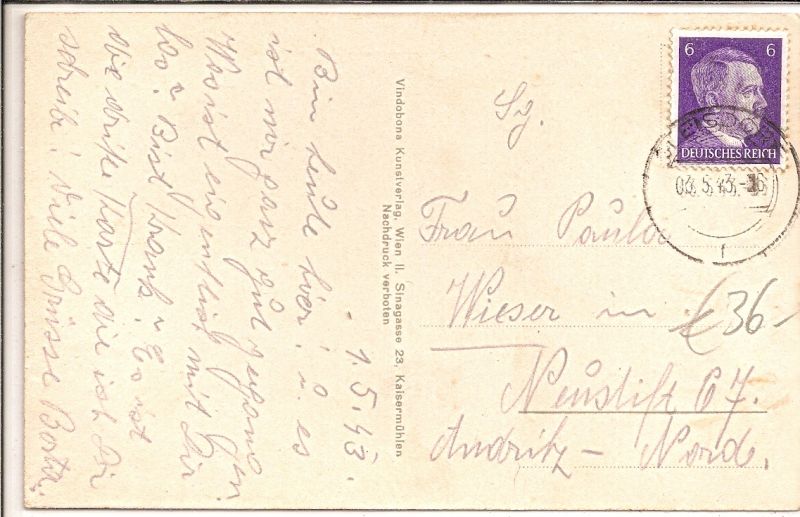 - 1.5.43.
Bin heute hier! u. es
ist mir ganz gut gegangen.
Wo ist eigentlich mit Dir
los? Bist krank? Es ist
die dritte Karte die ich Dir
schreibe! Viele Grüsse Berta.
Vindobona Kunstverlag, Wien II. Sinagasse 23, Kaisermühlen
Nachdruck verboten
6 6
DEUTSCHES REICH
03.5.43.-
f
Frau Paula
Wieser in
€36-
Neustift 67.
Andritz - Nord.